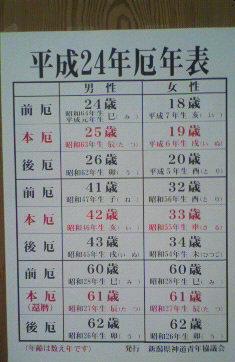 平成24年厄年表
男性 女性
前厄 24歳 18歳
昭和64年生 平成元年生 巳(み) 平成7年生 亥(い)
本厄 25歳 19歳
昭和63年生 辰(たつ) 平成6年生 戌(いぬ)
後厄 26歳 20歳
昭和62年生 卯(う) 平成5年生 酉(とり)
前厄 41歳 32歳
昭和47年生 子(ね) 昭和56年生 酉(とり)
本厄 42歳 33歳
昭和46年生 亥(い) 昭和55年生 申(さる)
後厄 43歳 34歳
昭和45年生 戌(いぬ) 昭和54年生 未(ひつじ)
前厄 60歳 60歳
昭和28年生 巳(み) 昭和28年生 巳(み)
本厄(還暦) 61歳 61歳
昭和27年生 辰(たつ) 昭和27年生 辰(たつ)
後厄 62歳 62歳
昭和26年生 卯(う) 昭和26年生 卯(う)
(年齢は数え年です) 発行 新潟県神道青年協議会